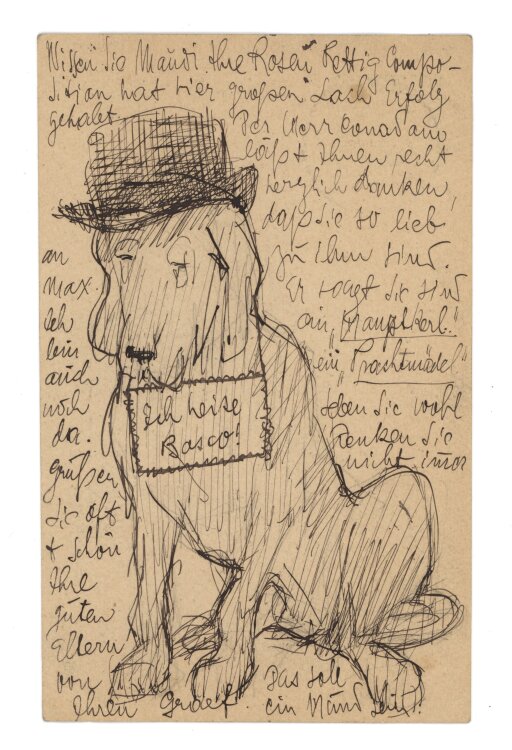 Wissen Sie Maudi Ihre Rosen Rettig Compo-
sition hat hier großen Lach Erfolg
gehabt.
Der Herr
läßt Ihnen recht
herzlich danken,
daß sie so lieb
zu Ihm sind.
Er sagt Sie sind
ein „Hauptkerl."
ein „Prachtmädel"
leben Sie wohl
denken Sie
nicht immer
an
Max.
Ich
bin
auch
noch
da.
Grüßen
Sie oft
+ schön
Ihre
guten
Eltern
von
Ihren Graef.
Ich heise
Basco!
Das soll
ein Hund sein!